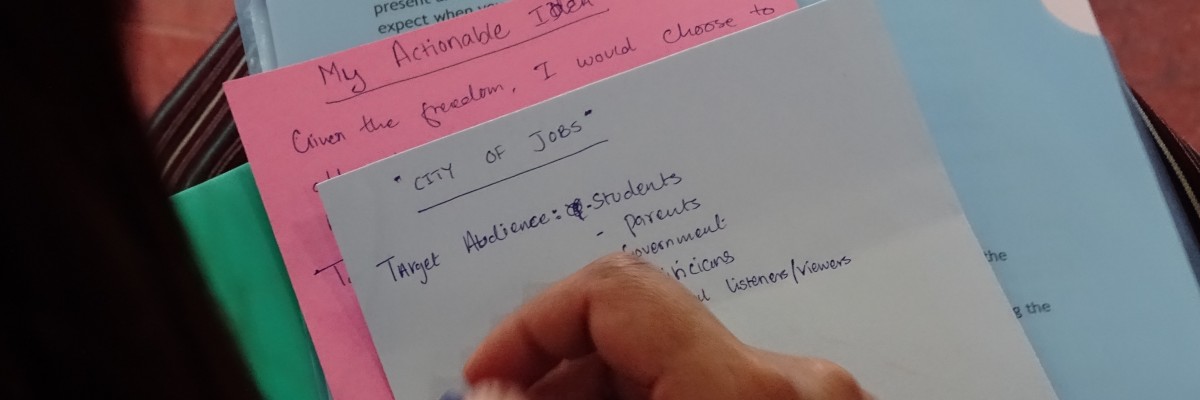 present
expect when you
My Actionable Idea
Given the freedom, I would choose to
"CITY OF JOBS"
Target Audience: - Students
- Parents
Government
listeners/viewers
the
the